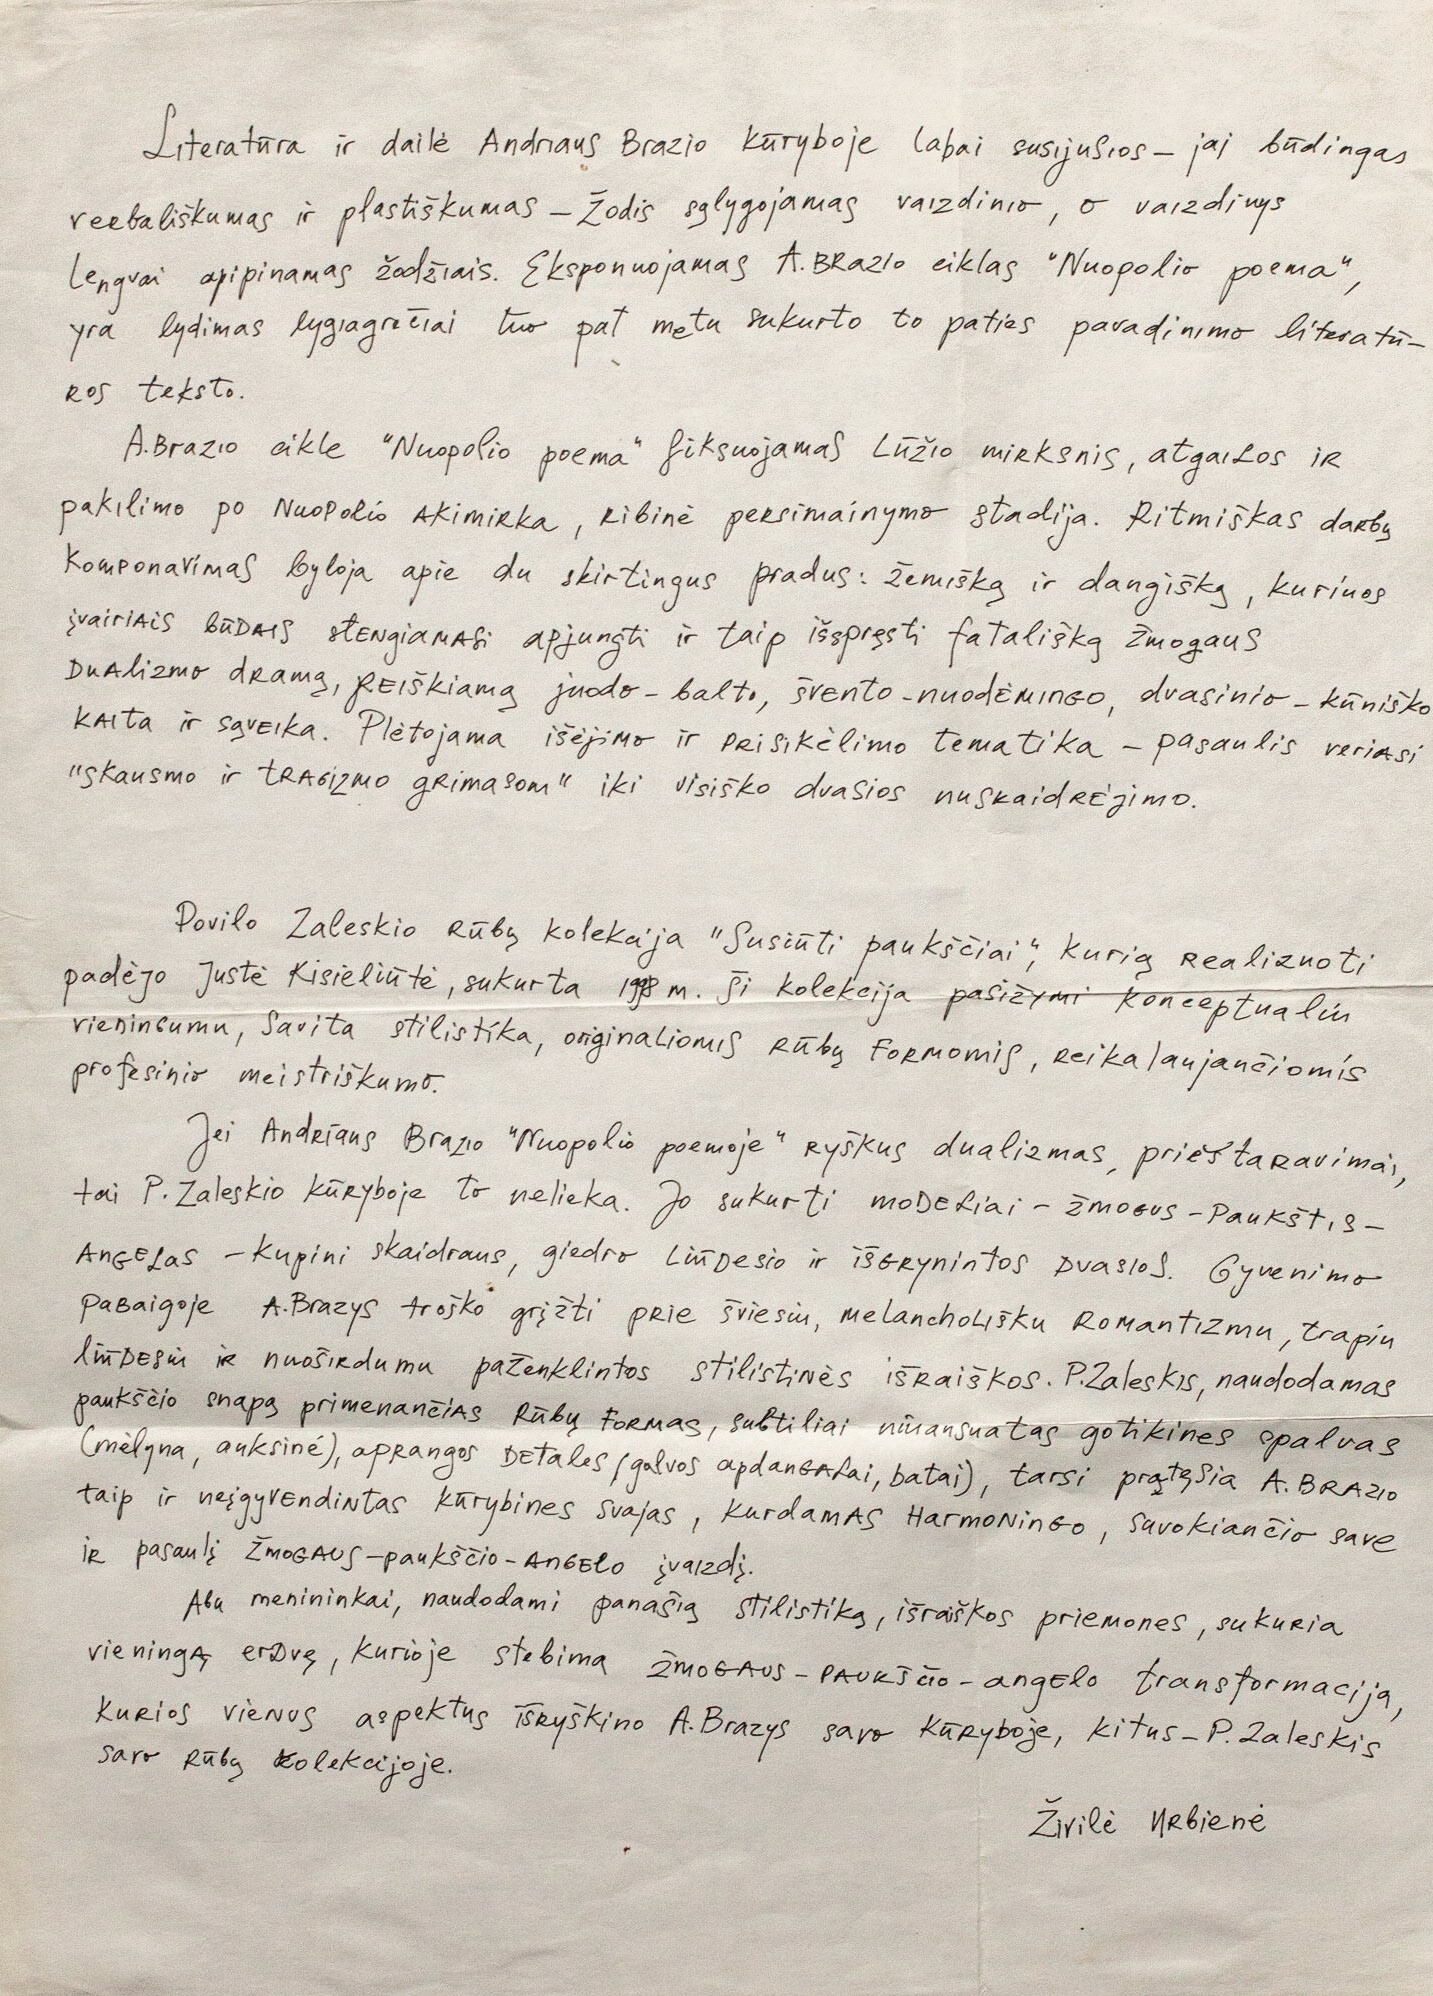 Literatūra ir dailė Andriaus Brazio kūryboje labai susijusios – jai būdingas
verbališkumas ir plastiškumas – žodis sąlygojamas vaizdinio, o vaizdinys
lengvai apipinamas žodžiais. Eksponuojamas A. Brazio ciklas "Nuopolio poema",
yra lydimas lygiagrečiai tuo pat metu sukurto to paties pavadinimo literatū-
ros teksto.
A. Brazio cikle "Nuopolio poema" fiksuojamas lūžio mirksnis, atgailos ir
pakilimo po nuopolio akimirka, ribinė persimainymo stadija. Ritmiškas darbų
komponavimas byloja apie du skirtingus pradus: žemišką ir dangišką, kuriuos
įvairiais būdais stengiamasi apjungti ir taip išspręsti fatališką žmogaus
dualizmo dramą, reiškiamą juodo – balto, švento – nuodėmingo, dvasinio – kūniško
kaita ir sąveika. Plėtojama išėjimo ir prisikėlimo tematika – pasaulis veriasi
"skausmo ir tragizmo grimasom" iki visiško dvasios nuskaidrėjimo.
Povilo Zaleskio rūbų kolekcija "Susiūti paukščiai", kurią realizuoti
padėjo Justė Kisieliūtė, sukurta 1998 m. Ši kolekcija pasižymi konceptualiu
vieningumu, savita stilistika, originaliomis rūbų formomis, reikalaujančiomis
profesinio meistriškumo.
Jei Andriaus Brazio "Nuopolio poemoje" ryškus dualizmas, prieštaravimai,
tai P. Zaleskio kūryboje to nelieka. Jo sukurti modeliai – žmogus – paukštis –
angelas – kupini skaidraus, giedro liūdesio ir išgrynintos dvasios. Gyvenimo
pabaigoje A. Brazys troško grįžti prie šviesių, melancholišku romantizmu, trapiu
liūdesiu ir nuoširdumu paženklintos stilistinės išraiškos. P. Zaleskis, naudodamas
paukščio snapą primenančias rūbų formas, subtiliai niuansuatas gotikines spalvas
(mėlyna, auksinė), aprangos detales (galvos apdangalai, batai), tarsi pratęsia A. Brazio
taip ir neįgyvendintas kūrybines svajas, kurdamas harmoningo, suvokiančio save
ir pasaulį žmogaus – paukščio – angelo įvaizdį.
Abu menininkai, naudodami panašią stilistiką, išraiškos priemones, sukuria
vieningą erdvę, kurioje stebima žmogaus – paukščio – angelo transformacija,
kurios vienus aspektus išryškino A. Brazys savo kūryboje, kitus – P. Zaleskis
savo rūbų kolekcijoje.
Živilė Urbienė